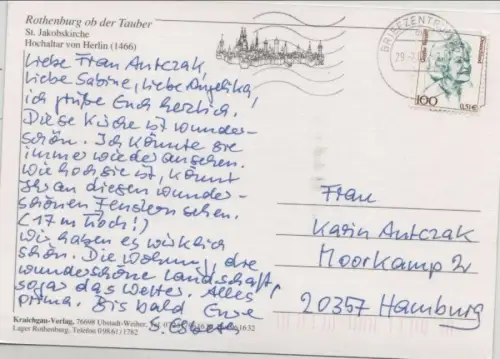 Rothenburg ob der Tauber
St. Jakobskirche
Hochaltar von Herlin (1466)
Liebe Frau Antczak,
liebe Sabine, liebe Angelika,
ich grüße Euch herzlich.
Diese Kirche ist wunder-
schön. Ich könnte sie
immer wieder ansehen.
Wie hoch sie ist, könnt
Ihr an diesen wunder-
schönen Fenstern sehen.
(17 m hoch!)
Wir haben es wirklich
schön. Die Wohnung, die
wunderschöne Landschaft,
sogar das Wetter. Alles
prima. Bis bald Eure
Kraichgau-Verlag, 76698 Ubstadt-Weiher, Tel.
Lager Rothenburg, Telefon 09861/1782
BRIEFZENTRUM
29
100
0,51€
Frau
Karin Antczak
Moorkamp 2
20357 Hamburg